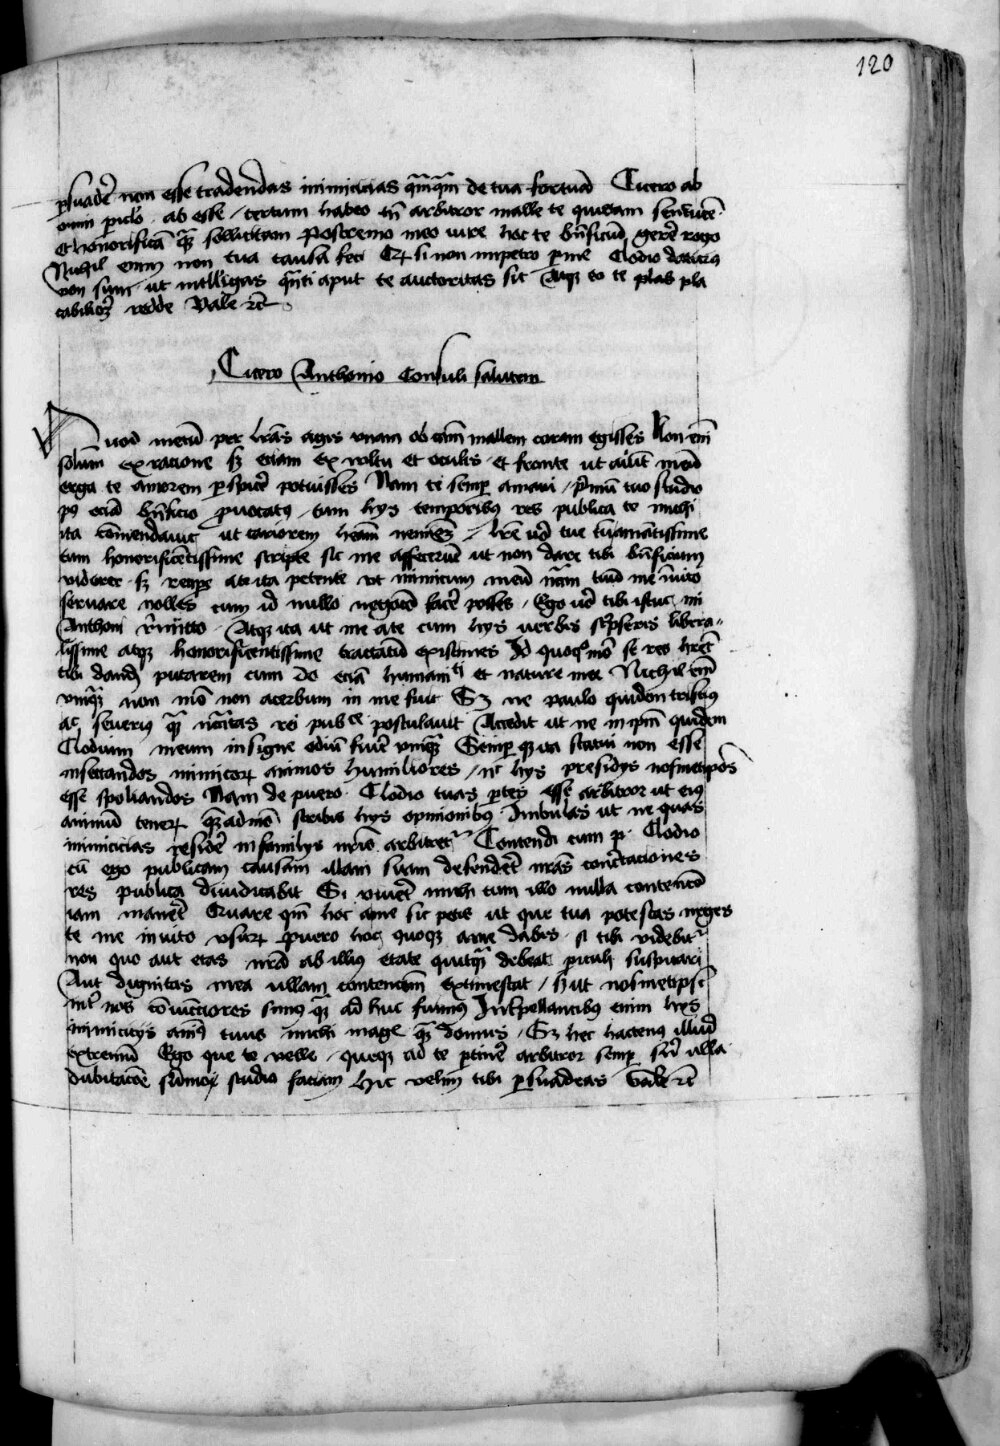 120
p̲suadē non esse tradendas inimicicias qm̄qm̄ de tua fortunā Cicero ab
omni piclo ab esse / certum habeo tn̄ arbitror malle te quietam senectutē
et honorificā q̄ȝ sollicitam Postremo meo iure hoc te bn̄ficiū gerē rogo
Nichil enim non tua causa feci Qꝛ si non impetro p̲ me Clodio daturus
non sum ut intelligas q̄nti aput te auctoritas sit Atqȝ eo te plab pla
cabiliorē redde Vale ꝛc̄
Cicero Anthonio Consuli salutem
Quod mecū per lrās agis vnam ob cām mallem coram egisses Non em̄
solum ex racione sȝ eciam ex voltu et oculis et fronte ut aiūt meū
erga te amorem p̲spicē potuisses Nam te semp̲ amaui / p̄mū tuo studio
pꝰ eciā bn̄ficio p̲uocatꝰ tum hys temporibꝰ res publica te michi
ita cōmendauit ut cariorem heām neminē / lrē uō tue tū amātissime
tum honorificētissime scripte sic me affecerūt ut non dare tibi bn̄ficium
viderer sȝ recipe a te ita petente vt inimicum meū nc̄cm tuū me īuito
seruare nolles cum id nullo negocō facē posses / Ego uō tibi istuc mi
Anthoni r̄mitto Atqȝ ita ut me a te cum hys uerbis sc̄pseris libera-
lissime atqȝ honorificentissime tractatū existimes Id quoqȝ mō se res hrēt
tibi dandū putarem cum do eciā humani^ti et nature mee Nichil em̄
vmq̄ȝ non mō non acerbum in me fuit Sȝ ne paulo quidem tristius
ac seuerius q̄ȝ nc̄citas rei pub^ce postulauit Accedit ut ne in ip̄m quidem
Clodium meum insigne odiū fuit vmq̄ȝ Semp̲ qȝ ita statui non esse
insectandos inimicoꝝ amicos humiliores / nc̄ hys presidys nosmetip̄os
esse spoliandos Nam de puero Clodio tuas p̲tes esse arbitror ut eiꝰ
animū tenerꝝ q̄ȝadmō scribis hys opinionibꝰ Imbuas ut ne quas
inimicicias residē in familys nr̄is arbitret^r Contendi cum p Clodio
cū ego publicam causam ille suam defenderet nrās cont̄ctaciones
res publica diiudicabit Si viuēt michi cum illo nulla contencio
iam manēt Quare qm̄ hoc a me sic petis ut que tua potestas neges
te me inuito vsurꝝ puero hoc quoqȝ a me dabis si tibi videbit^r
non quo aut etas nrā ab illius etate quitq̄ȝ debeat p̲iculi suspicari
Aut dignitas mea ullam contencōm extimescat / sȝ ut nosmetipsi
int^r nos cōiūctiores simꝰ q̄ȝ ad huc fuimꝰ Int̄pellantibꝰ enim hys
inimicicys aīs tuus michi mage q̄ȝ domus / Sȝ hec hactenus illud
extremū Ego que te velle queqȝ ad te p̲tinē arbitror semp̲ sn̄ ulla
dubitacōe sūmoqȝ studio faciam hic velim tibi p̲suadeas Vale ꝛc̄